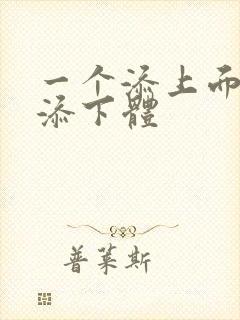 一个添上面
添下體
普莱斯